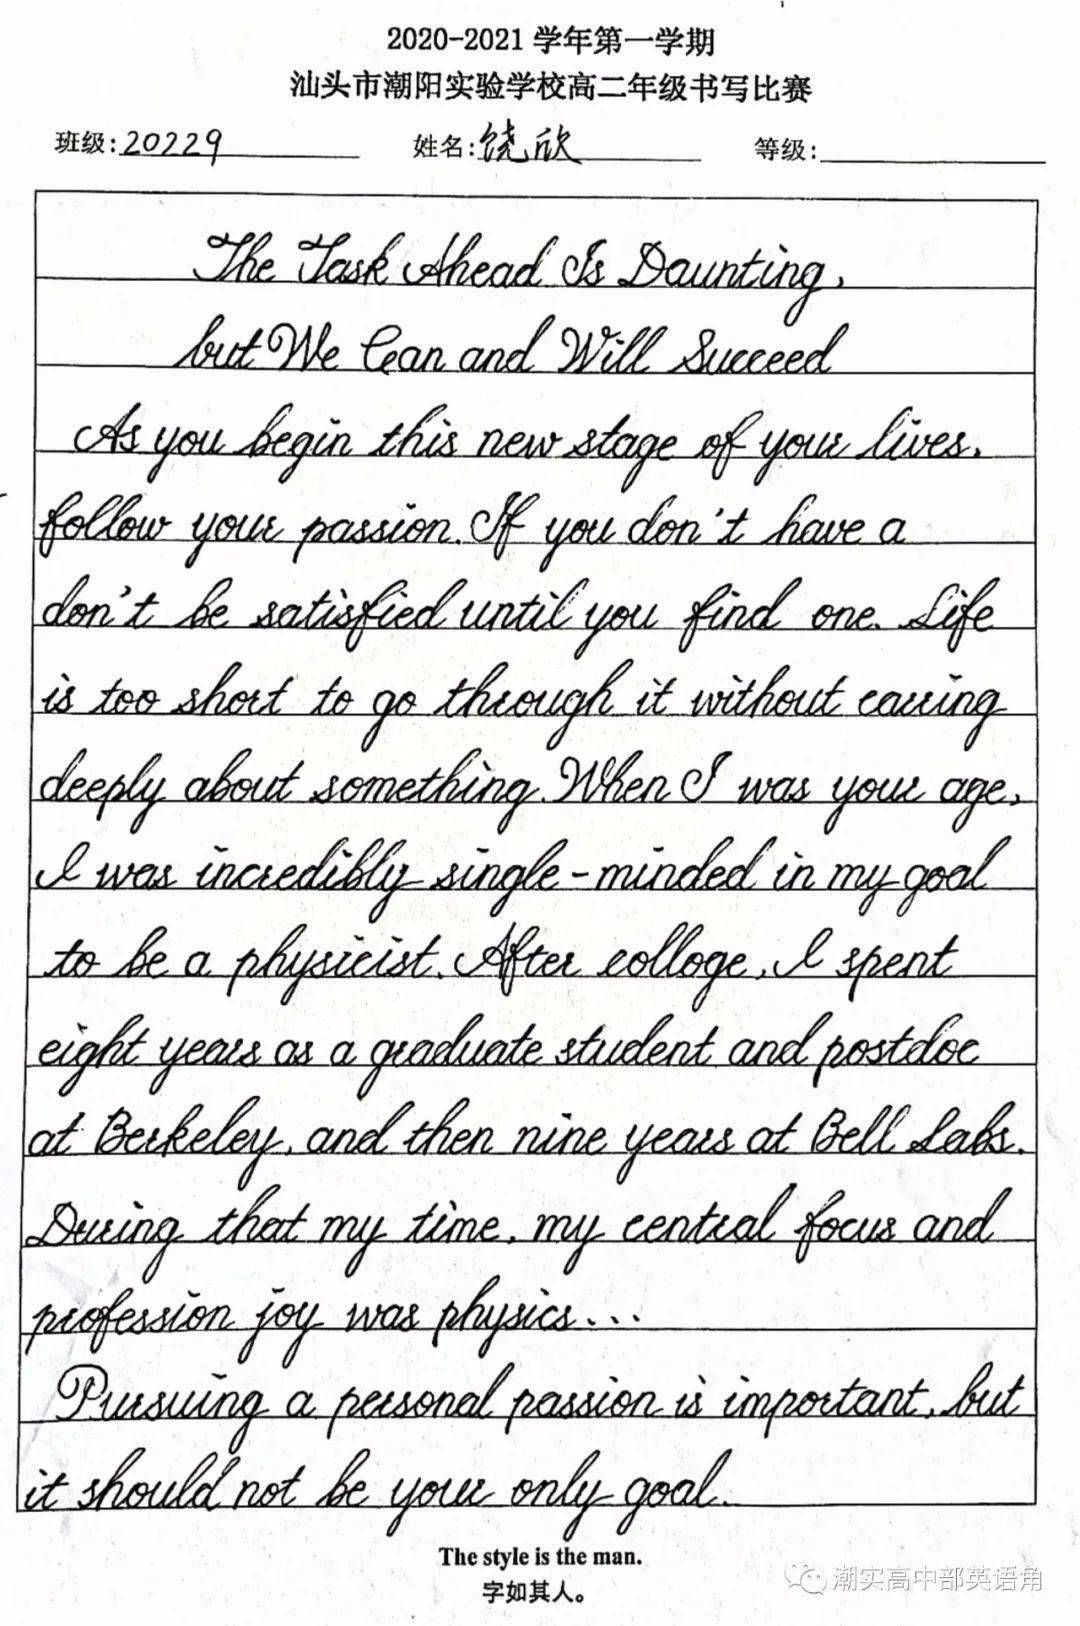 2020-2021 学年第一学期
汕头市潮阳实验学校高二年级书写比赛
班级: 20229 姓名: 饶欣 等级:
The Task Ahead Is Daunting,
but We Can and Will Succeed
As you begin this new stage of your lives,
follow your passion. If you don't have a
don't be satisfied until you find one. Life
is too short to go through it without carring
deeply about something. When I was your age,
I was incredibly single-minded in my goal
to be a physicist. After colloge, I spent
eight years as a graduate student and postdoc
at Berkeley, and then nine years at Bell Labs.
During that my time, my central focus and
profession joy was physics...
Pursuing a personal passion is important, but
it should not be your only goal.
The style is the man.
字如其人。
潮实高中部英语角